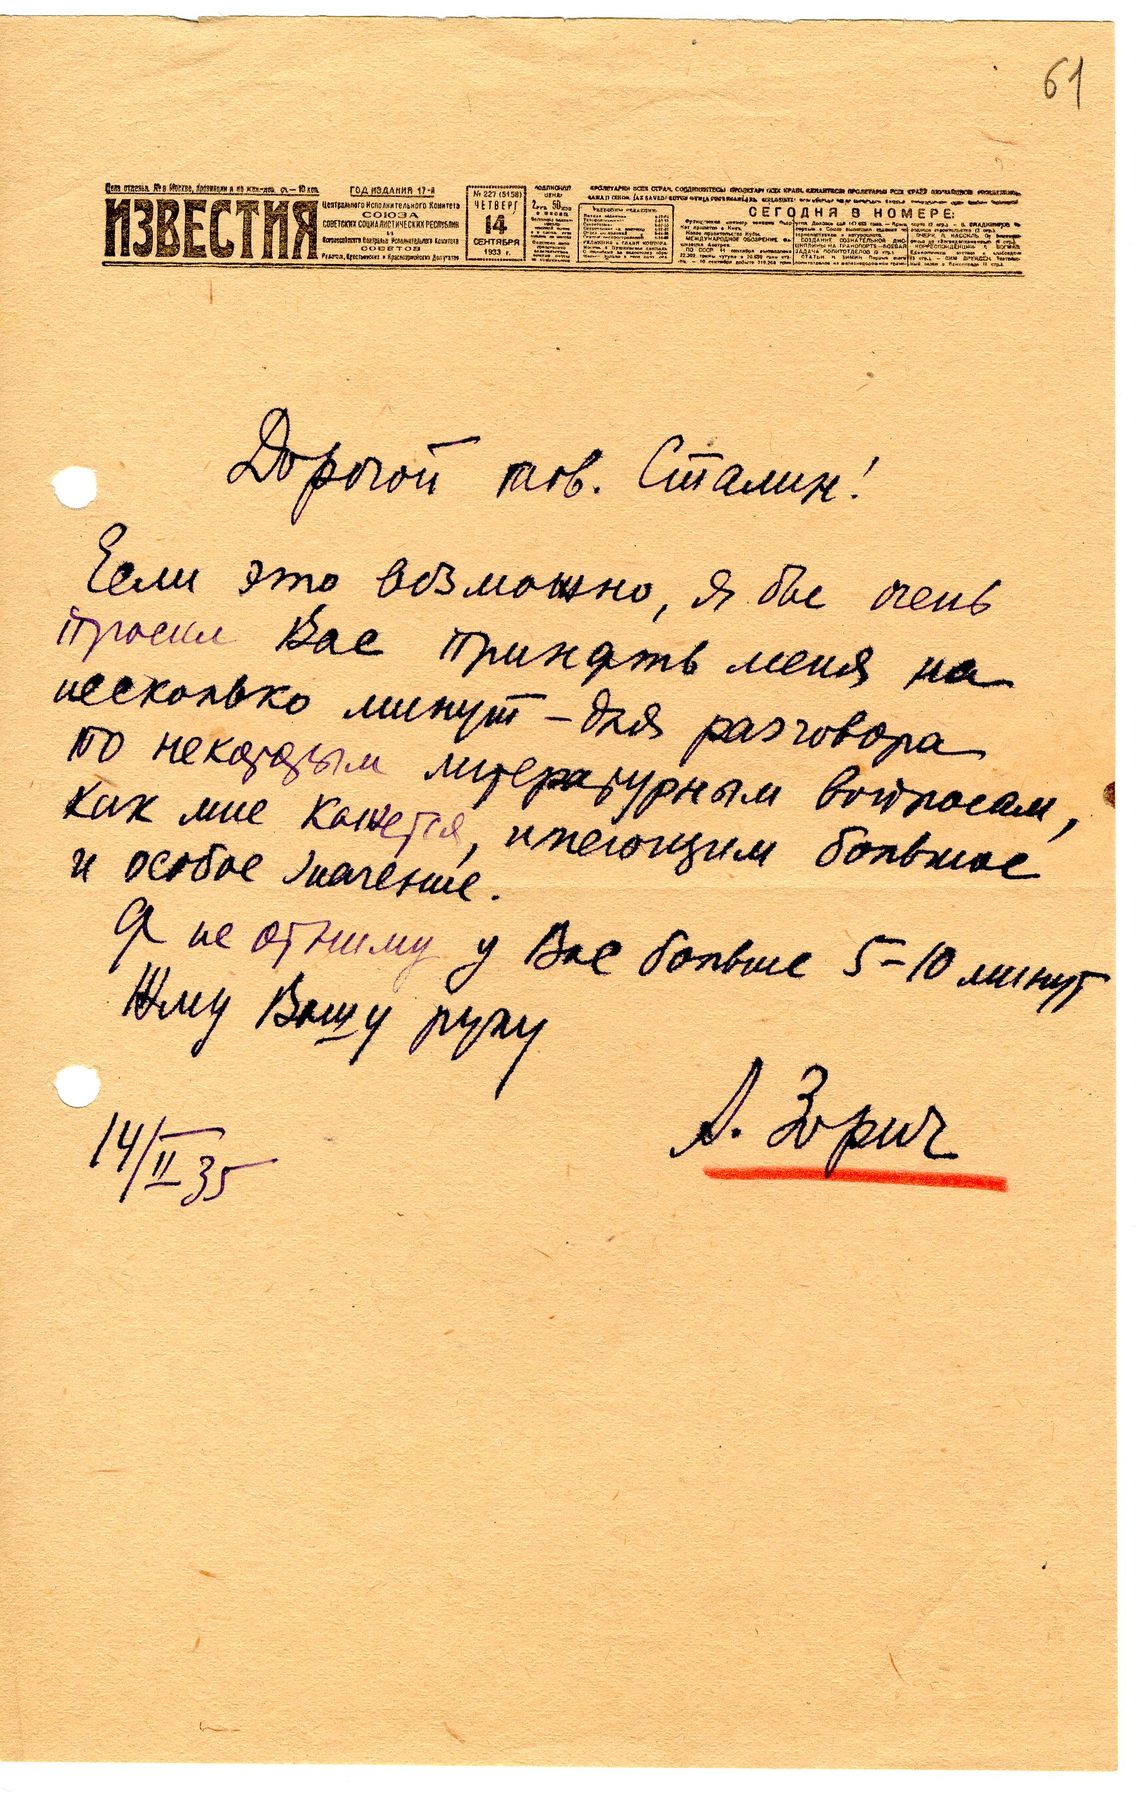 61
ИЗВЕСТИЯ
ГОД ИЗДАНИЯ 17-й
Центрального Исполнительного Комитета
СОЮЗА
СОВЕТСКИХ СОЦИАЛИСТИЧЕСКИХ РЕСПУБЛИК
и
Всероссийского Центральн. Исполнительн. Комитета
СОВЕТОВ
Рабочих, Крестьянских и Красноармейских Депутатов
№ 227 (5158)
ЧЕТВЕРГ
14
СЕНТЯБРЯ
1933 г.
СЕГОДНЯ В НОМЕРЕ:
Дорогой тов. Сталин!
Если это возможно, я бы очень
просил Вас принять меня на
несколько минут – для разговора
по некоторым литературным вопросам,
как мне кажется, имеющим большое
и особое значение.
Я не отниму у Вас больше 5–10 минут
Жму Вашу руку
А. Зорич
14/II 35